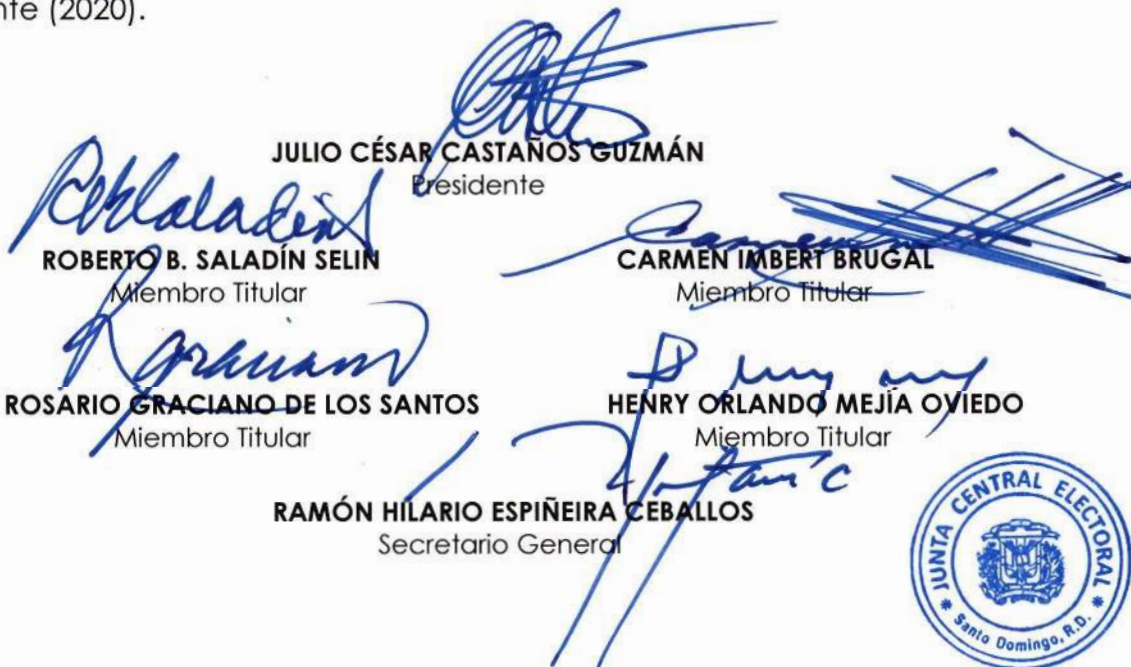 nte (2020).
JULIO CÉSAR CASTAÑOS GUZMÁN
Presidente
ROBERTO B. SALADÍN SELIN
Miembro Titular
CARMEN IMBERT BRUGAL
Miembro Titular
ROSARIO GRACIANO DE LOS SANTOS
Miembro Titular
HENRY ORLANDO MEJÍA OVIEDO
Miembro Titular
RAMÓN HILARIO ESPIÑEIRA CEBALLOS
Secretario General
JUNTA CENTRAL ELECTORAL
Santo Domingo, R.D.